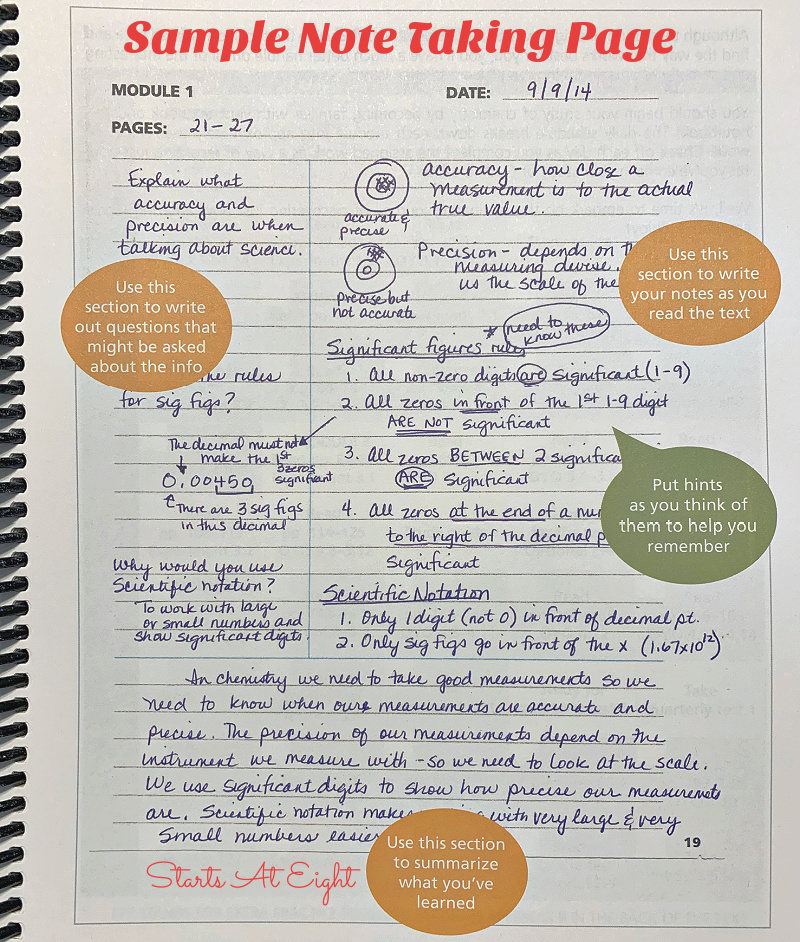 Sample Note Taking Page
MODULE 1
DATE: 9/9/14
PAGES: 21-27
Explain what
accuracy and
precision are when
talking about science.
Use this
section to write
out questions that
might be asked
about the info
the rules
for sig figs?
The decimal must not
make the 1st
3 zeros
significant
0.00450
There are 3 sig figs
in this decimal
Why would you use
Scientific notation?
To work with large
or small numbers and
show significant digits.
accurate &
precise
accuracy - how close a
measurement is to the actual
true value.
Precise but
not accurate
Precision - depends on
measuring devise.
us the scale of the
Use this
section to write
your notes as you
read the text
* need to
know these
Significant figures rules
1. All non-zero digits are significant (1-9)
2. All zeros in front of the 1st 1-9 digit
ARE NOT significant
3. All zeros BETWEEN 2
ARE significant
4. All zeros at the end of a
to the right of the decimal
Significant
Put hints
as you think of
them to help you
remember
Scientific Notation
1. Only 1 digit (not 0) in front of decimal pt.
2. Only sig figs go in front of the x (1.67x10¹²)
In chemistry we need to take good measurements so we
need to know when our measurements are accurate and
precise. The precision of our measurements depend on the
instrument we measure with - so we need to look at the scale.
We use significant digits to show how precise our measurements
are. Scientific notation makes with very large & very
Small numbers easier
19
Use this section
to summarize
what you've
learned
Starts At Eight